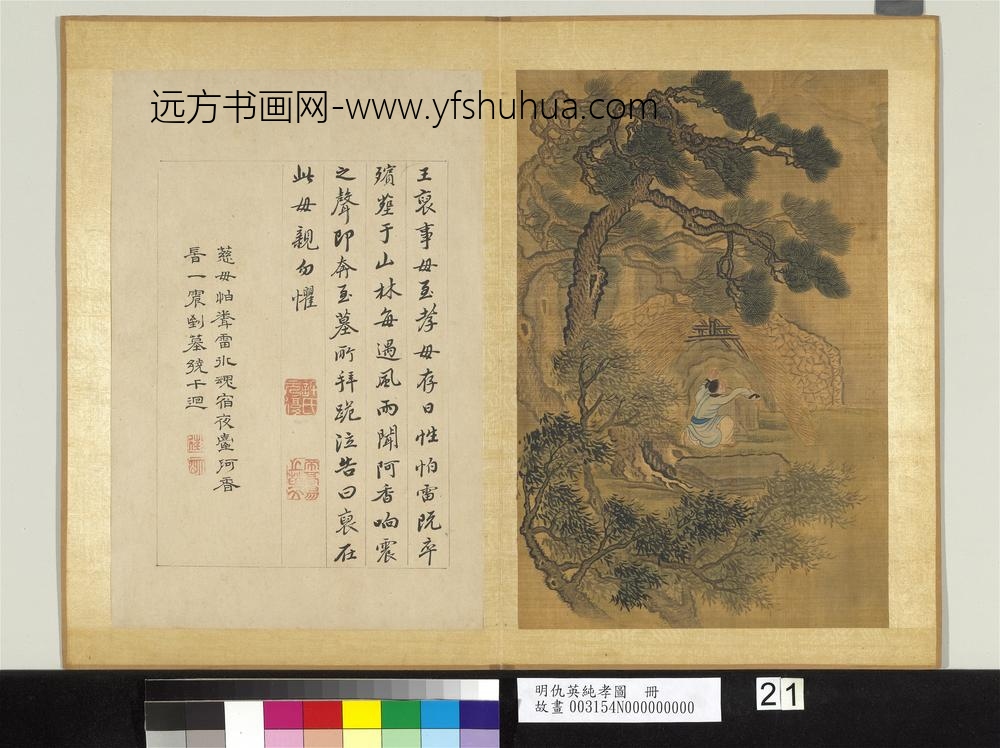 远方书画网-www.yfshuhua.com
王裒事母至孝母存日性怕雷既卒
殯塟于山林每遇風雨聞阿香响震
之聲即奔至墓所拜跪泣告曰裒在
此母親勿懼
慈母怕聞雷氷魂宿夜臺阿香
時一震到墓繞千迴
明仇英純孝圖 冊
故畫 003154N000000000
21